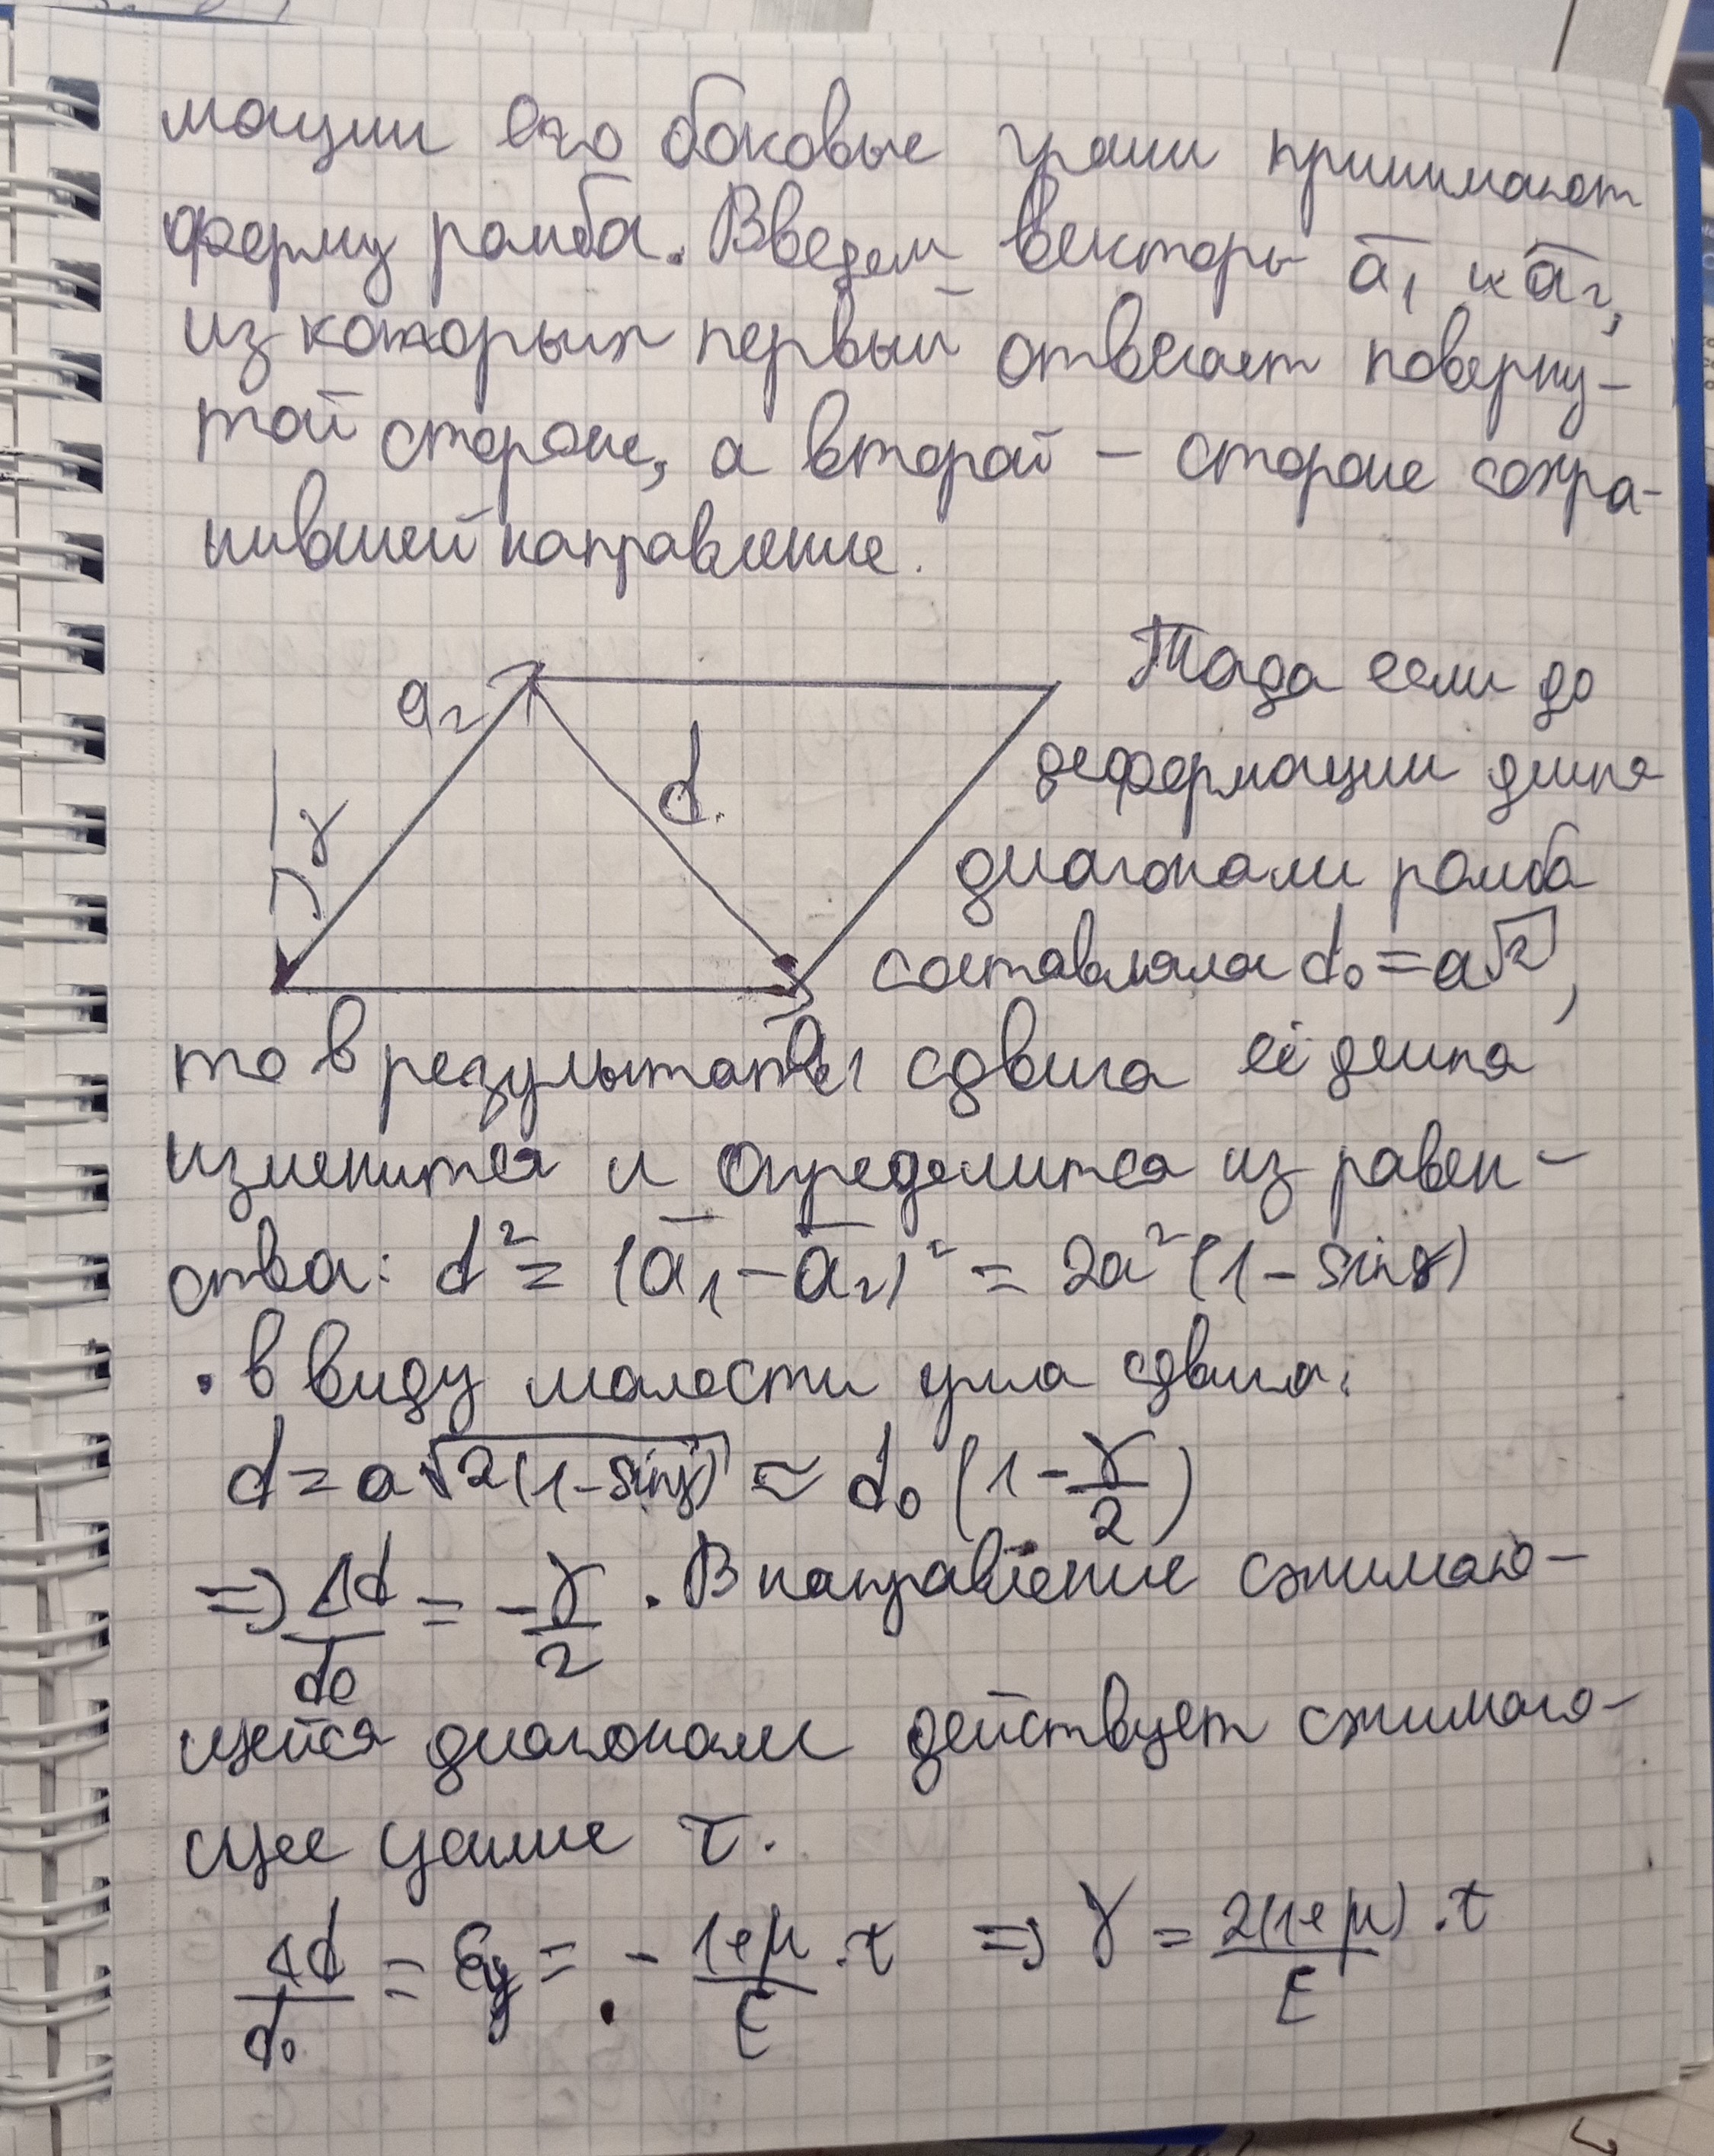 мации его боковые грани принимают
форму ромба. Введем векторы a̅₁ и a̅₂,
из которых первый отвечает поверну-
той стороне, а второй – стороне сохра-
нившей направление.
Тогда если до
a₂
d
деформации длина
γ
диагонали ромба
составляла d₀ = a√2,
a₁
то в результате сдвига её длина
изменится и определится из равен-
ства: d² = (a̅₁ - a̅₂)² = 2a²(1 - sinγ)
. в виду малости угла сдвига:
d = a√2(1-sinγ) ≈ d₀ (1 - γ/2)
=> Δd/d₀ = -γ/2. В направление сжимаю-
щейся диагонали действует сжимаю-
щее усилие τ.
Δd/d₀ = εy = - 1+μ/E · τ => γ = 2(1+μ)/E · τ